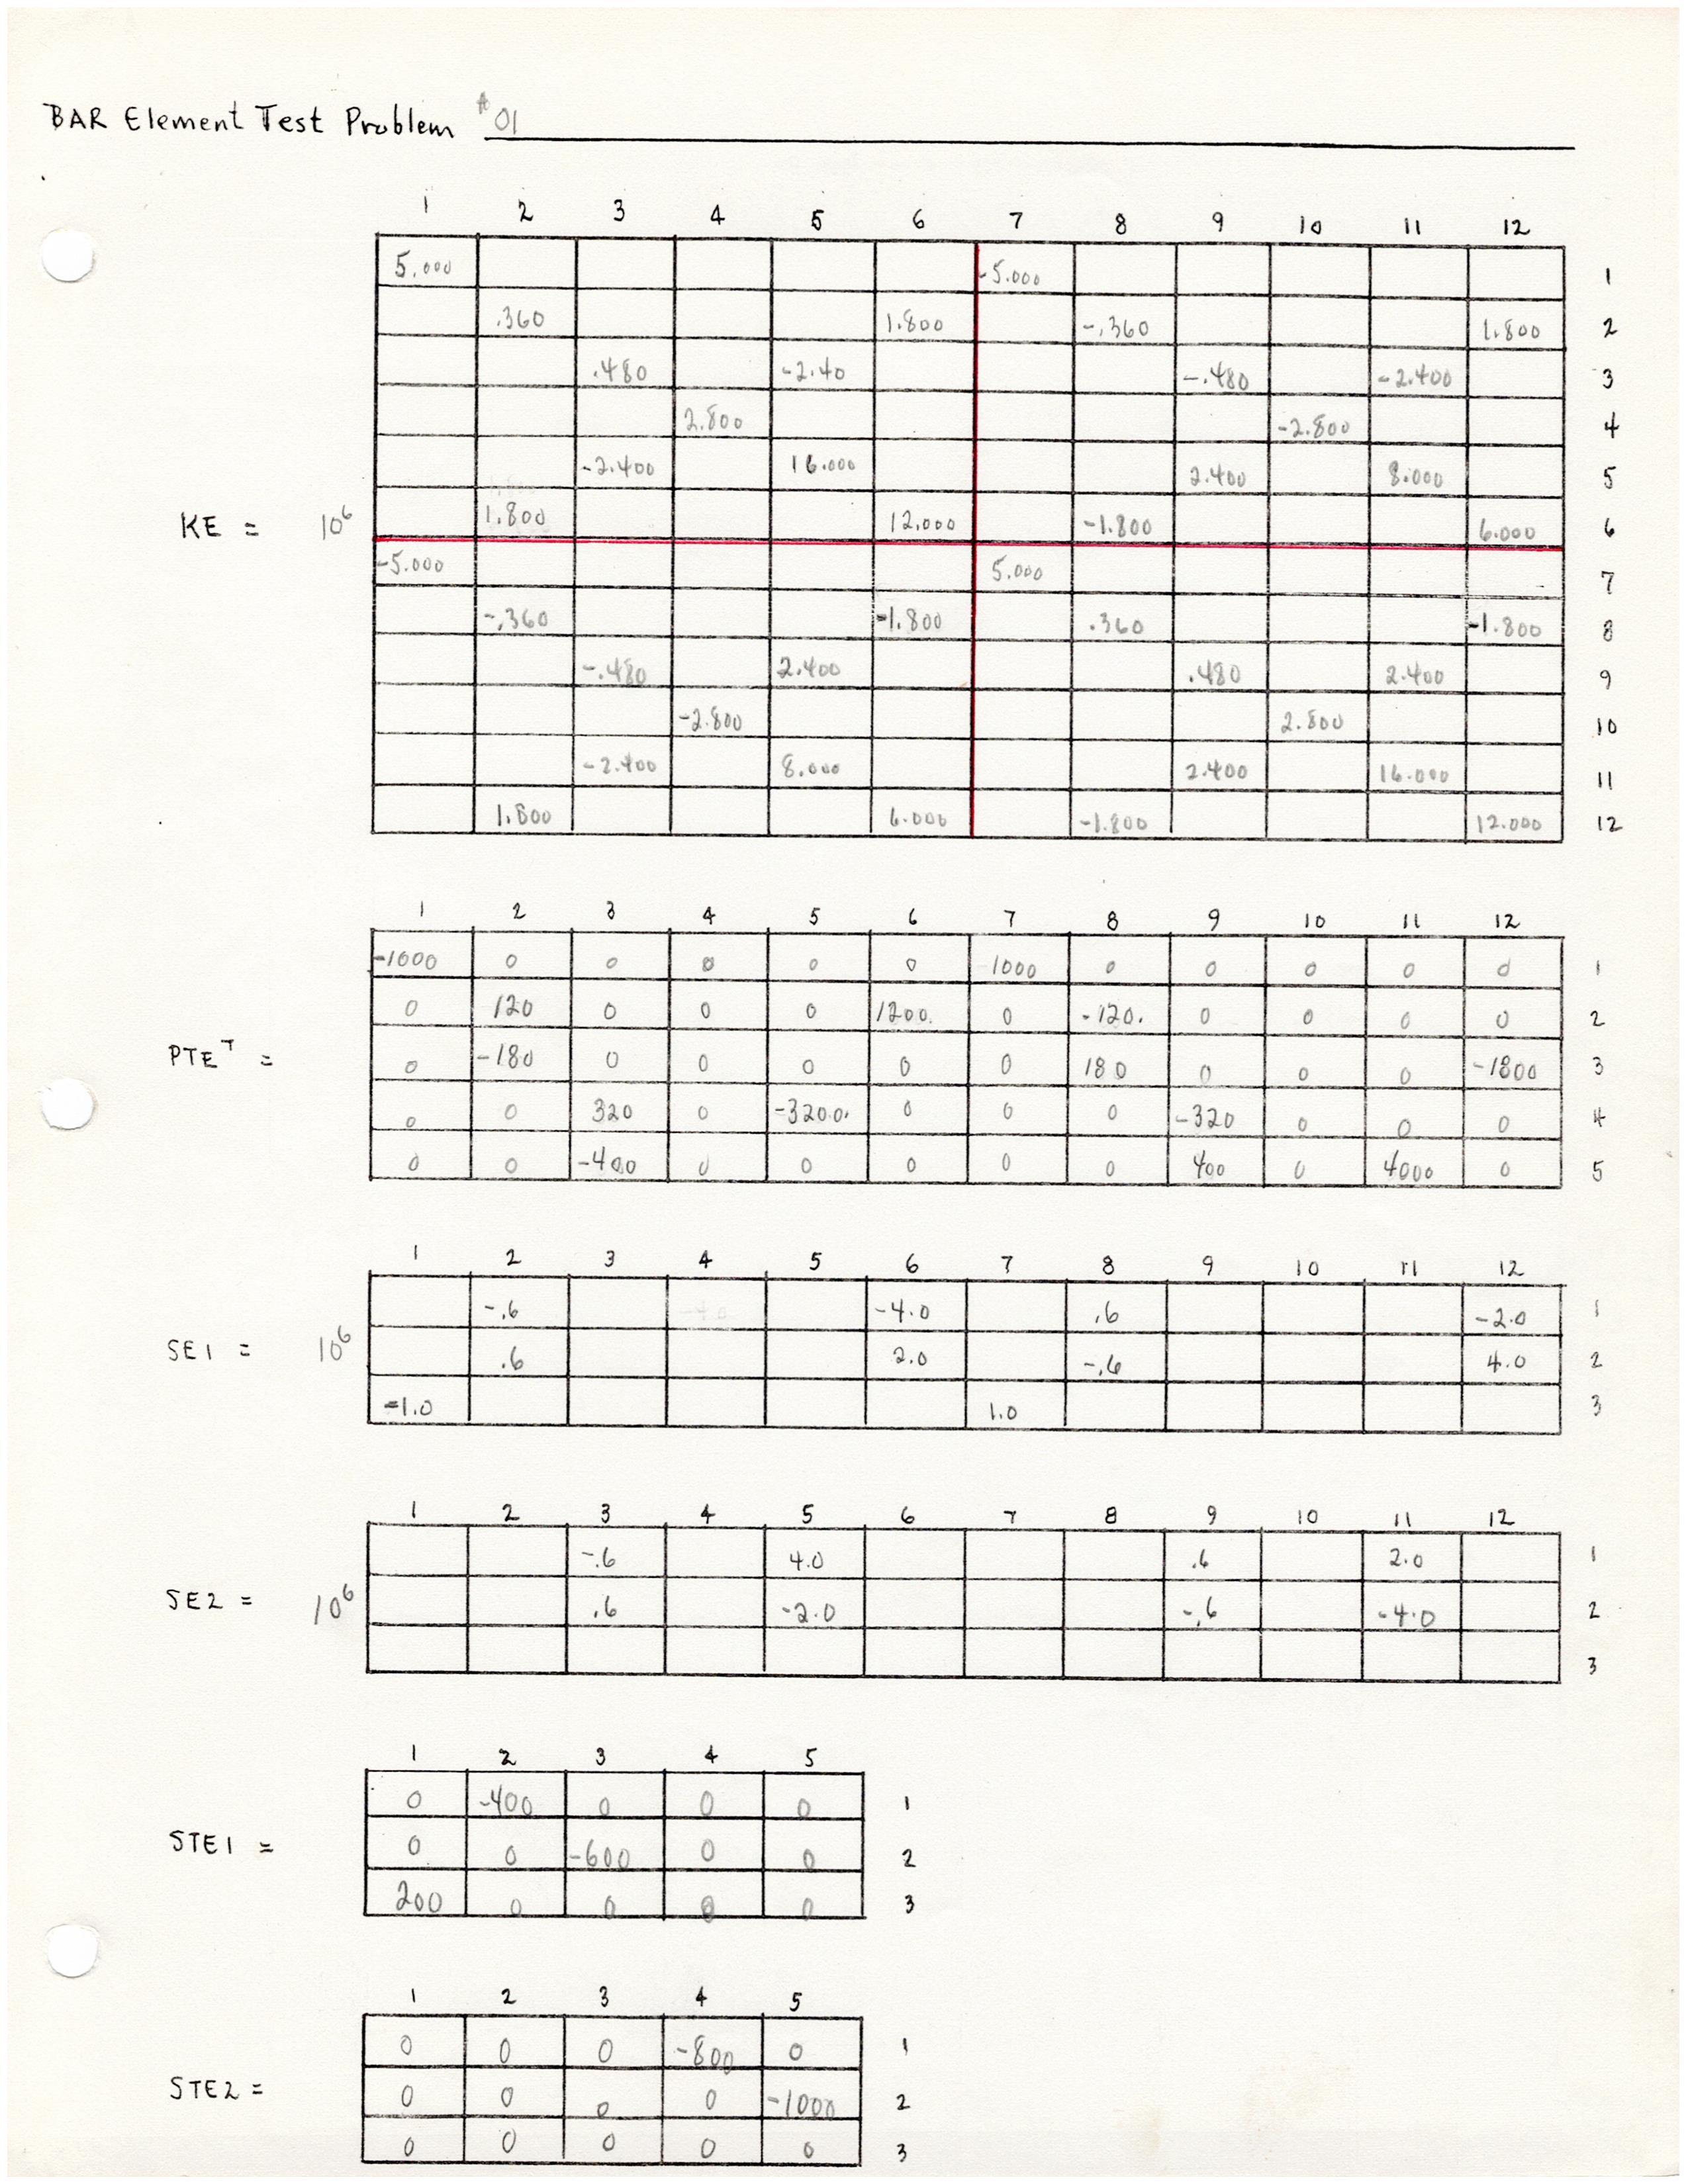 BAR Element Test Problem #01
1 2 3 4 5 6 7 8 9 10 11 12
5.000 -5.000 1
.360 1.800 -.360 1.800 2
.480 -2.40 -.480 -2.400 3
2.800 -2.800 4
-2.400 16.000 2.400 8.000 5
KE = 10⁶ 1.800 12.000 -1.800 6.000 6
-5.000 5.000 7
-.360 -1.800 .360 -1.800 8
-.480 2.400 .480 2.400 9
-2.800 2.800 10
-2.400 8.000 2.400 16.000 11
1.800 6.000 -1.800 12.000 12
1 2 3 4 5 6 7 8 9 10 11 12
-1000 0 0 0 0 0 1000 0 0 0 0 0 1
0 120 0 0 0 1200. 0 -120. 0 0 0 0 2
PTEᵀ = 0 -180 0 0 0 0 0 180 0 0 0 -1800 3
0 0 320 0 -3200. 0 0 0 -320 0 0 0 4
0 0 -400 0 0 0 0 0 400 0 4000 0 5
1 2 3 4 5 6 7 8 9 10 11 12
-.6 -4.0 .6 -2.0 1
SE1 = 10⁶ .6 2.0 -.6 4.0 2
-1.0 1.0 3
1 2 3 4 5 6 7 8 9 10 11 12
-.6 4.0 .6 2.0 1
SE2 = 10⁶ .6 -2.0 -.6 -4.0 2
3
1 2 3 4 5
0 -400 0 0 0 1
STE1 = 0 0 -600 0 0 2
200 0 0 0 0 3
1 2 3 4 5
0 0 0 -800 0 1
STE2 = 0 0 0 0 -1000 2
0 0 0 0 0 3